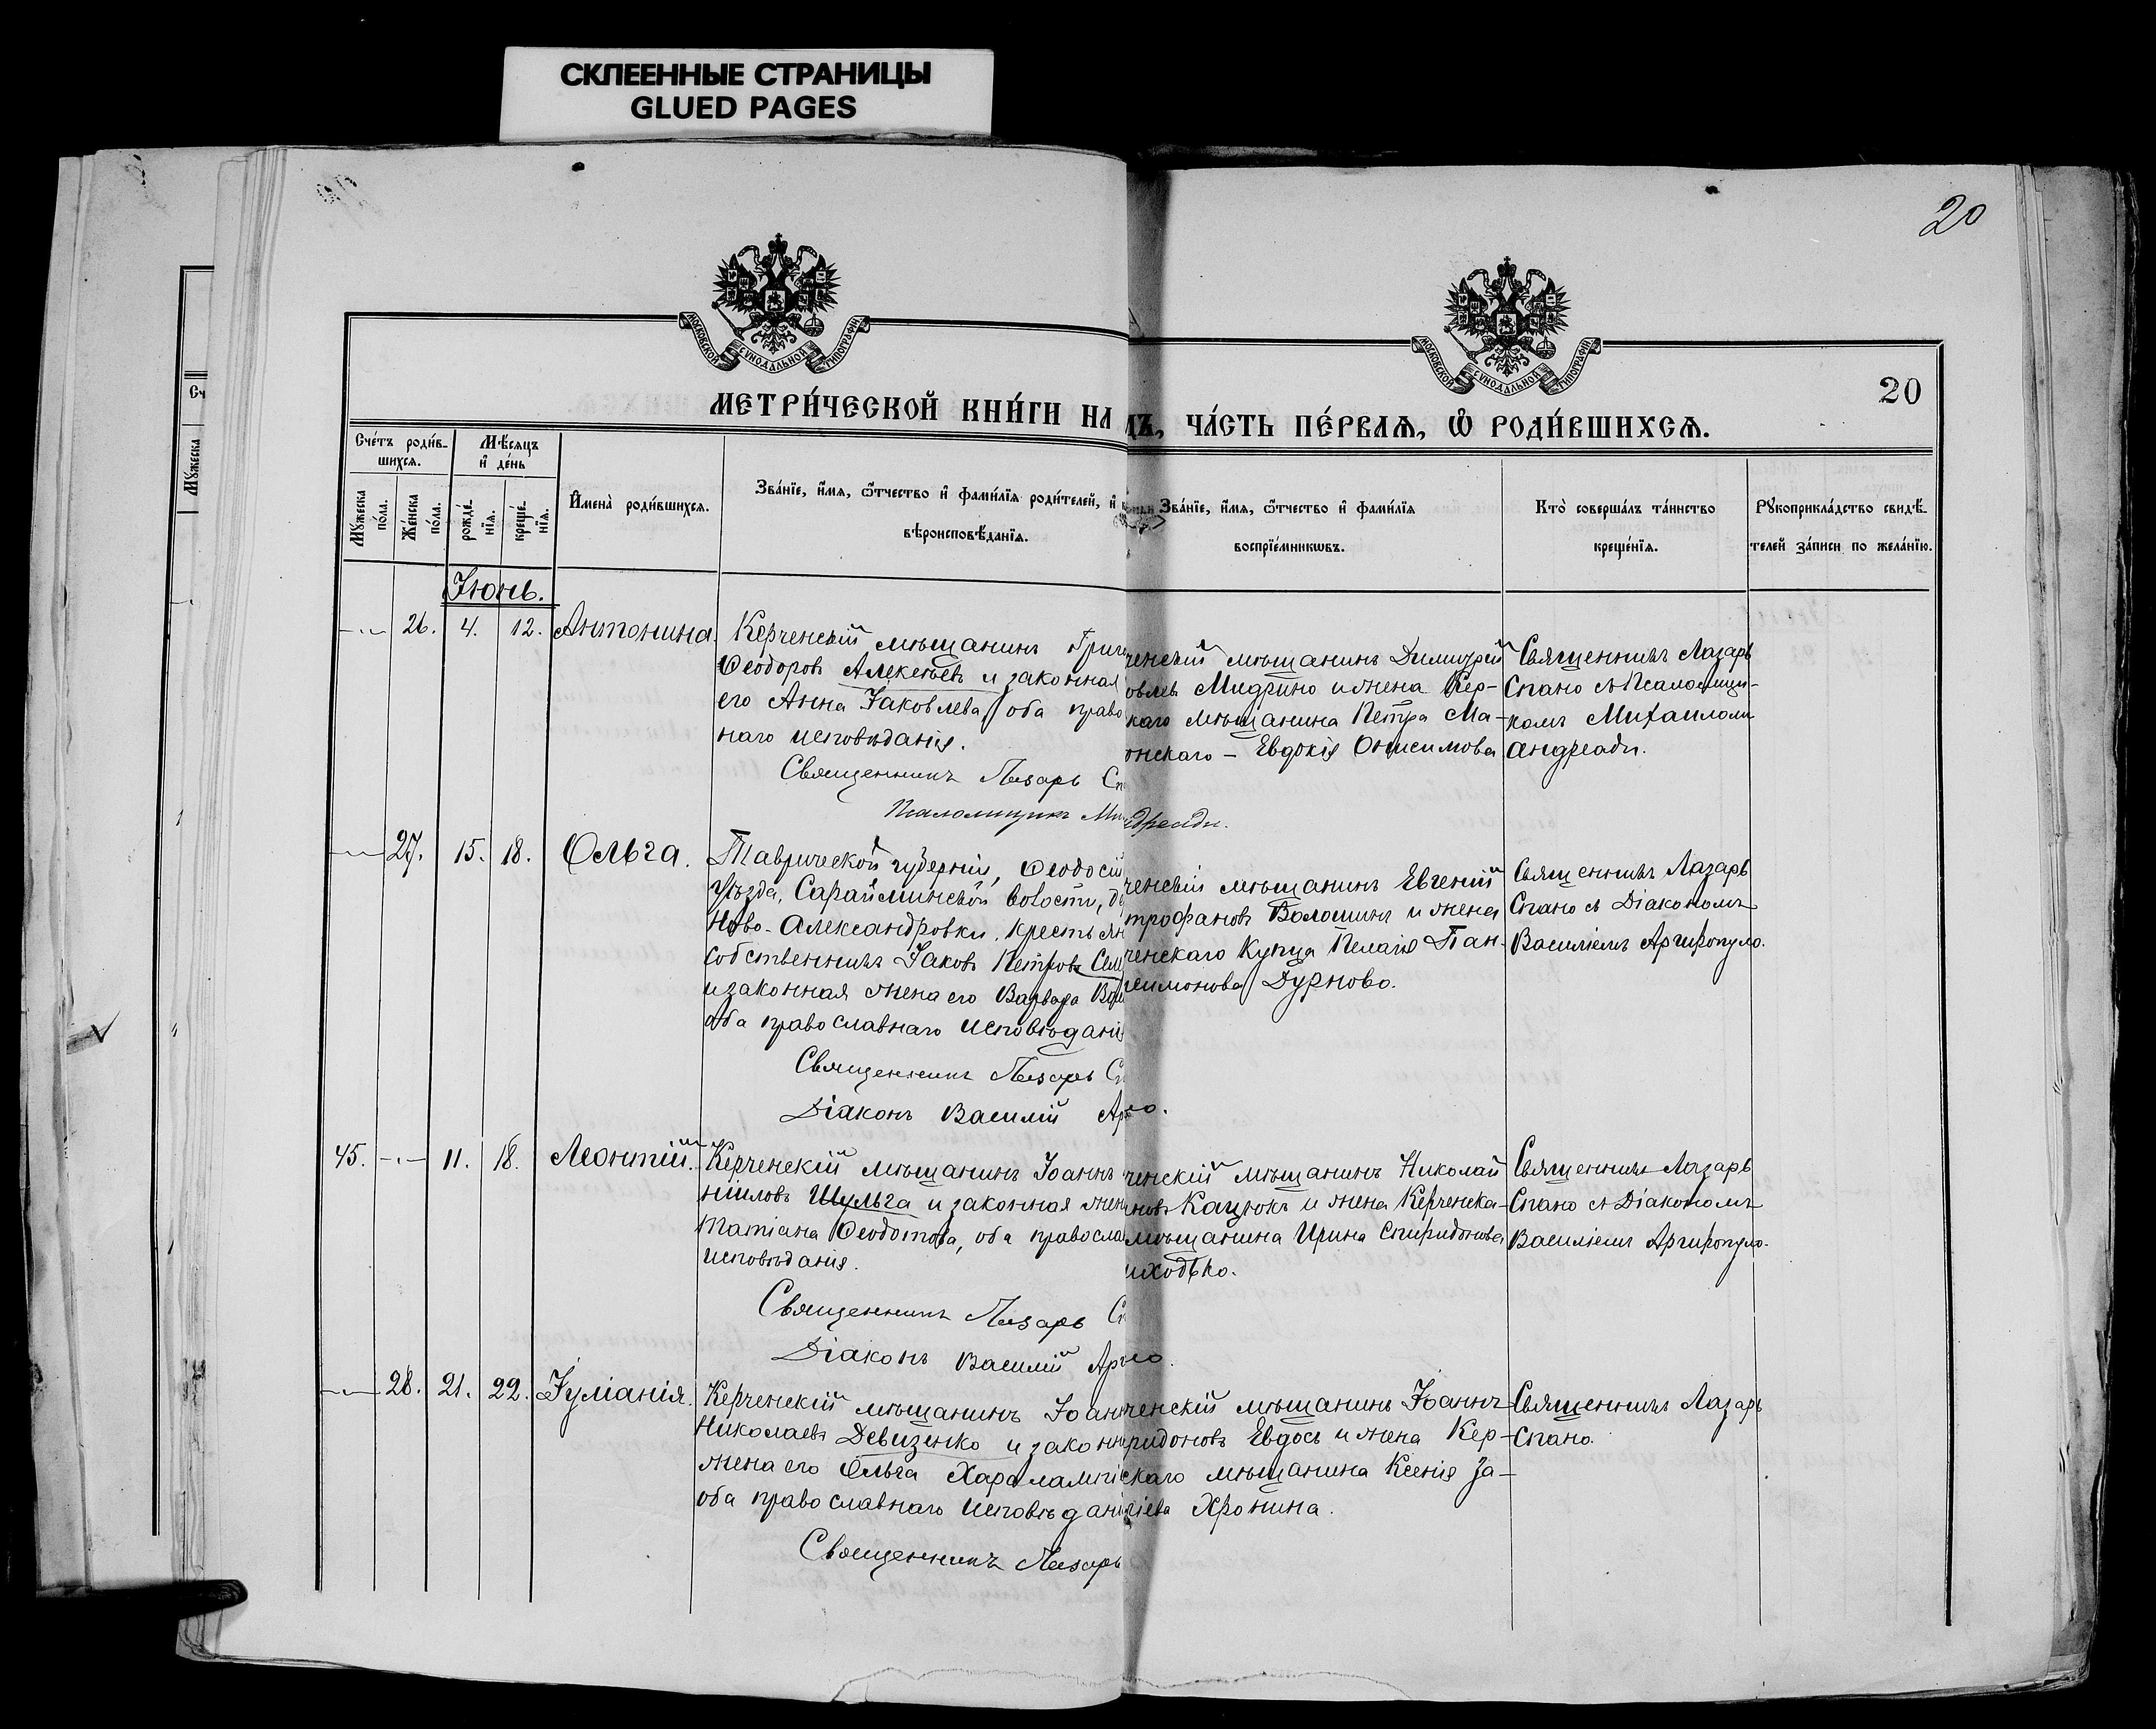 СКЛЕЕННЫЕ СТРАНИЦЫ
GLUED PAGES
20
МОСКОВСКОЙ СѴНОДАЛЬНОЙ ТИПОГРАФІИ
МОСКОВСКОЙ СѴНОДАЛЬНОЙ ТИПОГРАФІИ
20
МЕТРИ́ЧЕСКОЙ КНИ́ГИ НА
ЧА́СТЬ ПЕ́РВАѦ, Ѡ҆ РОДИ́ВШИХСѦ.
Сче́тъ роди́в-
шихсѧ.
Мѣ́сяцъ
и҆ де́нь
Мꙋ́жеска
по́ла.
Же́нска
по́ла.
рожде́-
нїѧ.
креще́-
нїѧ.
И҆мена̀ роди́вшихсѧ.
Зва́нїе, и҆́мѧ, ѻ҆́тчество и҆ фами́лїѧ роди́телей, и҆
вѣроисповѣ́данїѧ.
Зва́нїе, и҆́мѧ, ѻ҆́тчество и҆ фами́лїѧ
воспрїе́мникѡвъ.
Кто̀ соверша́лъ та́инство
креще́нїѧ.
Рꙋкоприкла́дство свидѣ́-
телей за́писи по жела́нїю.
Сч
Мꙋ́жеска
Іюнь.
26. 4. 12. Антонина.
Керченскій мѣщанинъ Григ
Ѳеодоровъ Алексѣевъ и законная
его Анна Іаковлева, оба право
наго исповѣданія.
Священникъ Лазарь Сп
Псаломщикъ Ми
ченскій мѣщанинъ Димитрій
овлевъ Мидрино и жена Кер-
каго мѣщанина Петра Ма-
онскаго - Евдокія Онисимова
дреади.
Священникъ Лазарь
Спано съ Псаломщи-
комъ Михаиломъ
Андреади.
27. 15. 18. Ольга.
Таврической губерніи, Ѳеодосій
уѣзда, Сарайминской волости, д
Ново-Александровки, крестьян
собственникъ Іаковъ Петровъ
и законная жена его Варвара
оба православнаго исповѣдані
Священникъ Лазарь С
Діаконъ Василій Ар
ченскій мѣщанинъ Евгеній
трофановъ Волошинъ и жена
ченскаго Купца Пелагія Пан-
леимонова Дурново.
ло.
Священникъ Лазарь
Спано съ Діакономъ
Василіемъ Аргиропуло.
45. 11. 18. Леонтій.
Керченскій мѣщанинъ Іоаннъ
ніиловъ Шульга и законная жен
Татіана Ѳеодотова, оба правосла
исповѣданія.
Священникъ Лазарь С
Діаконъ Василій Арг
ченскій мѣщанинъ Николай
новъ Кацюкъ и жена Керченска-
мѣщанина Ирина Спиридонова
иходько.
ло.
Священникъ Лазарь
Спано съ Діакономъ
Василіемъ Аргиропуло.
28. 21. 22. Іуліанія.
Керченскій мѣщанинъ Іоан
Николаевъ Девизенко и законн
жена его Ольга Харалампі
оба православнаго исповѣдані
Священникъ Лазарь
ченскій мѣщанинъ Іоаннъ
ридоновъ Евдось и жена Кер-
скаго мѣщанина Ксенія За-
ріева Хронина.
Священникъ Лазарь
Спано.